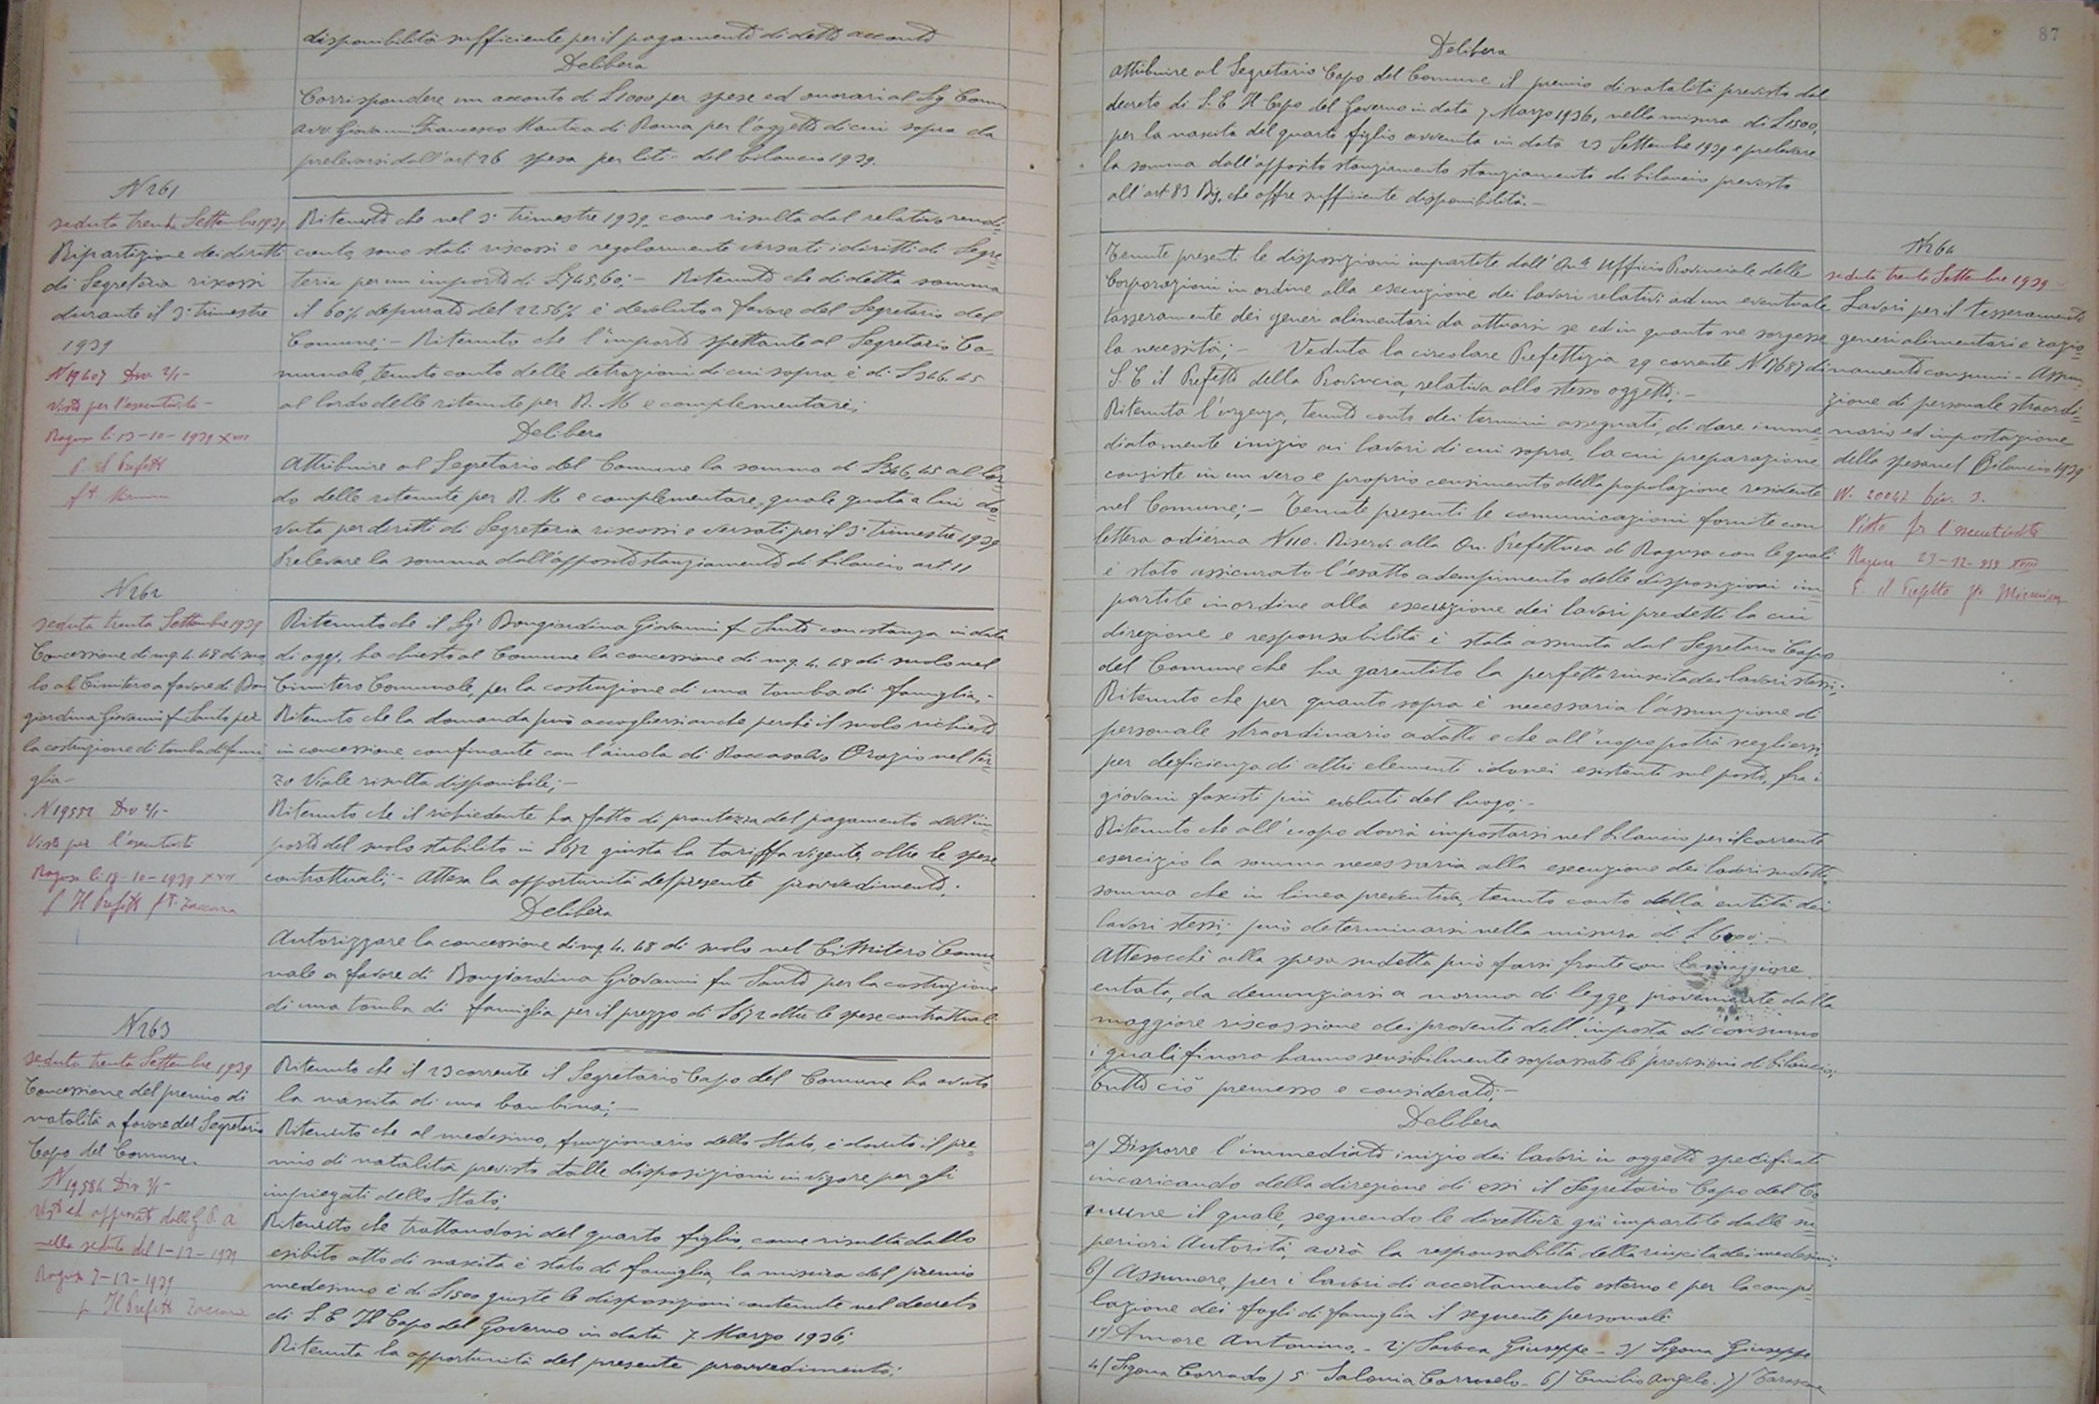 disponibilità sufficiente per il pagamento di detto acconto
Delibera
Corrispondere un acconto di £ 1000 per spese ed onorari al Sig. Comm
avv. Giovanni Francesco Mantica di Roma per l'oggetto di cui sopra da
prelevarsi dall'art 26 spesa per liti del bilancio 1939.
N 261
seduta trenta Settembre 1939
Ripartizione dei diritti
di Segreteria riscossi
durante il 3° trimestre
1939
N 19607 Div 2/1-
Visto per l'esecutività -
Ragusa li 13-10-1939 XVII
P. il Prefetto
Ritenuto che nel 3° trimestre 1939, come risulta dal relativo rendi=
conto, sono stati riscossi e regolarmente versati i diritti di Segre=
teria per un importo di £ 745,60; - Ritenuto che di detta somma
il 60% depurato del 22.56% è devoluto a favore del Segretario del
Comune; - Ritenuto che l'importo spettante al Segretario Co=
munale, tenuto conto delle detrazioni di cui sopra è di £ 346.45
al lordo delle ritenute per R. M e complementare;
Delibera
Attribuire al Segretario del Comune la somma di £ 346,45 al lor=
do delle ritenute per R. M e complementare, quale quota a lui do=
vuta per diritti di Segreteria riscossi e versati per il 3° trimestre 1939
Prelevare la somma dall'apposito stanziamento di bilancio art. 11
N 262
seduta trenta Settembre 1939
Concessione di mq. 4.48 di suo
lo al Cimitero a favore di Bon
giardina Giovanni fu Santo per
la costruzione di tomba di fami
glia -
N 19552 Div 2/1-
Visto per l'esecutività
Ragusa li 13-10-1939 XVII
p Il Prefetto ft. Zaccara
Ritenuto che il Sigr Bongiardina Giovanni fu Santo con istanza in data
di oggi, ha chiesto al Comune la concessione di mq. 4.48 di suolo nel
Cimitero Comunale, per la costruzione di una tomba di famiglia; -
Ritenuto che la domanda può accogliersi anche perchè il suolo richiesto
in concessione confinante con l'aiuola di Roccasalvo Orazio nel ter=
zo Viale risulta disponibile; -
Ritenuto che il richiedente ha fatto di prontezza del pagamento dell'im=
porto del suolo stabilito in £ 672 giusta la tariffa vigente, oltre le spese
contrattuali; - Attesa la opportunità del presente provvedimento;
Delibera
Autorizzare la concessione di mq 4.48 di suolo nel Cimitero Comu=
nale a favore di Bongiardina Giovanni fu Santo per la costruzione
di una tomba di famiglia per il prezzo di £ 672 oltre le spese contrattuali
N 263
seduta trenta Settembre 1939
Concessione del premio di
natalità a favore del Segretario
Capo del Comune.
N 19584 Div 2/1-
Visto ed approvato dalla G P. A
nella seduta del 1-12-1939
Ragusa 7-12-1939
p. Il Prefetto Zaccara
Ritenuto che il 23 corrente il Segretario Capo del Comune ha avuto
la nascita di una bambina; -
Ritenuto che al medesimo, funzionario dello Stato, è dovuto il pre=
mio di natalità previsto dalle disposizioni in vigore per gli
impiegati dello Stato;
Ritenuto che trattandosi del quarto figlio, come risulta dallo
esibito atto di nascita e stato di famiglia, la misura del premio
medesimo è di £ 1500 giuste le disposizioni contenute nel decreto
di S. E Il Capo del Governo in data 7 Marzo 1936;
Ritenuta la opportunità del presente provvedimento;
87
Delibera
Attribuire al Segretario Capo del Comune il premio di natalità previsto dal
decreto di S. E Il Capo del Governo in data 7 Marzo 1936, nella misura di £ 1500,
per la nascita del quarto figlio avvenuta in data 23 Settembre 1939 e prelevare
la somma dall'apposito stanziamento stanziamento di bilancio previsto
all'art 83 Bis, che offre sufficiente disponibilità. -
N 264
seduta trenta Settembre 1939 -
Lavori per il tesseramento
generi alimentari e razio=
namento consumi - Assun=
zione di personale straordi=
nario ed impostazione
della spesa nel Bilancio 1939
N. 20042 Div. 3.
Visto per l'esecutività
Ragusa 23-12-939 XVIII
P. il Prefetto
Tenute presenti le disposizioni impartite dall'On. Ufficio Provinciale delle
Corporazioni in ordine alla esecuzione dei lavori relativi ad un eventuale
tesseramento dei generi alimentari da attuarsi se ed in quanto ne sorgesse
la necessità; - Veduta la circolare Prefettizia 29 corrente N 17687 di
S. E il Prefetto della Provincia, relativa allo stesso oggetto; -
Ritenuta l'urgenza, tenuto conto dei termini assegnati, di dare imme=
diatamente inizio ai lavori di cui sopra, la cui preparazione
consiste in un vero e proprio censimento della popolazione residente
nel Comune; - Tenute presenti le comunicazioni fornite con
lettera odierna N 110. Riserv. alla On. Prefettura di Ragusa con le quali
è stato assicurato l'esatto adempimento delle disposizioni im=
partite in ordine alla esecuzione dei lavori predetti la cui
direzione e responsabilità è stata assunta dal Segretario Capo
del Comune che ha garentito la perfetta riuscita dei lavori stessi;
Ritenuto che per quanto sopra è necessaria l'assunzione di
personale straordinario adatto e che all'uopo potrà scegliersi
per deficienza di altri elementi idonei esistenti sul posto, fra i
giovani fascisti più evoluti del luogo; -
Ritenuto che all'uopo dovrà impostarsi nel bilancio per il corrente
esercizio la somma necessaria alla esecuzione dei lavori sudetti
somma che in linea preventiva, tenuto conto della entità dei
lavori stessi; può determinarsi nella misura di £ 6000; -
Attesocchè alla spesa sudetta può farsi fronte con la maggiore
entrata, da denunziarsi a norma di legge, proveniente dalla
maggiore riscossione dei proventi dell'imposta di consumo
i quali finora hanno sensibilmente sorpassate le previsioni di bilancio;
Tutto ciò premesso e considerato; -
Delibera
a) Disporre l'immediato inizio dei lavori in oggetto specificati
incaricando della direzione di essi il Segretario Capo del Co=
mune il quale, seguendo le direttive già impartite dalle su=
periori Autorità, avrà la responsabilità della riuscita dei medesimi;
b) Assumere, per i lavori di accertamento esterno e per la compi=
lazione dei fogli di famiglia il seguente personale
1°) Amore Antonino - 2°) Giuseppe - 3) Sigona Giuseppe
4) Sigona Corrado) 5 Salonia Carmelo - 6) Emilio Angelo - 7)